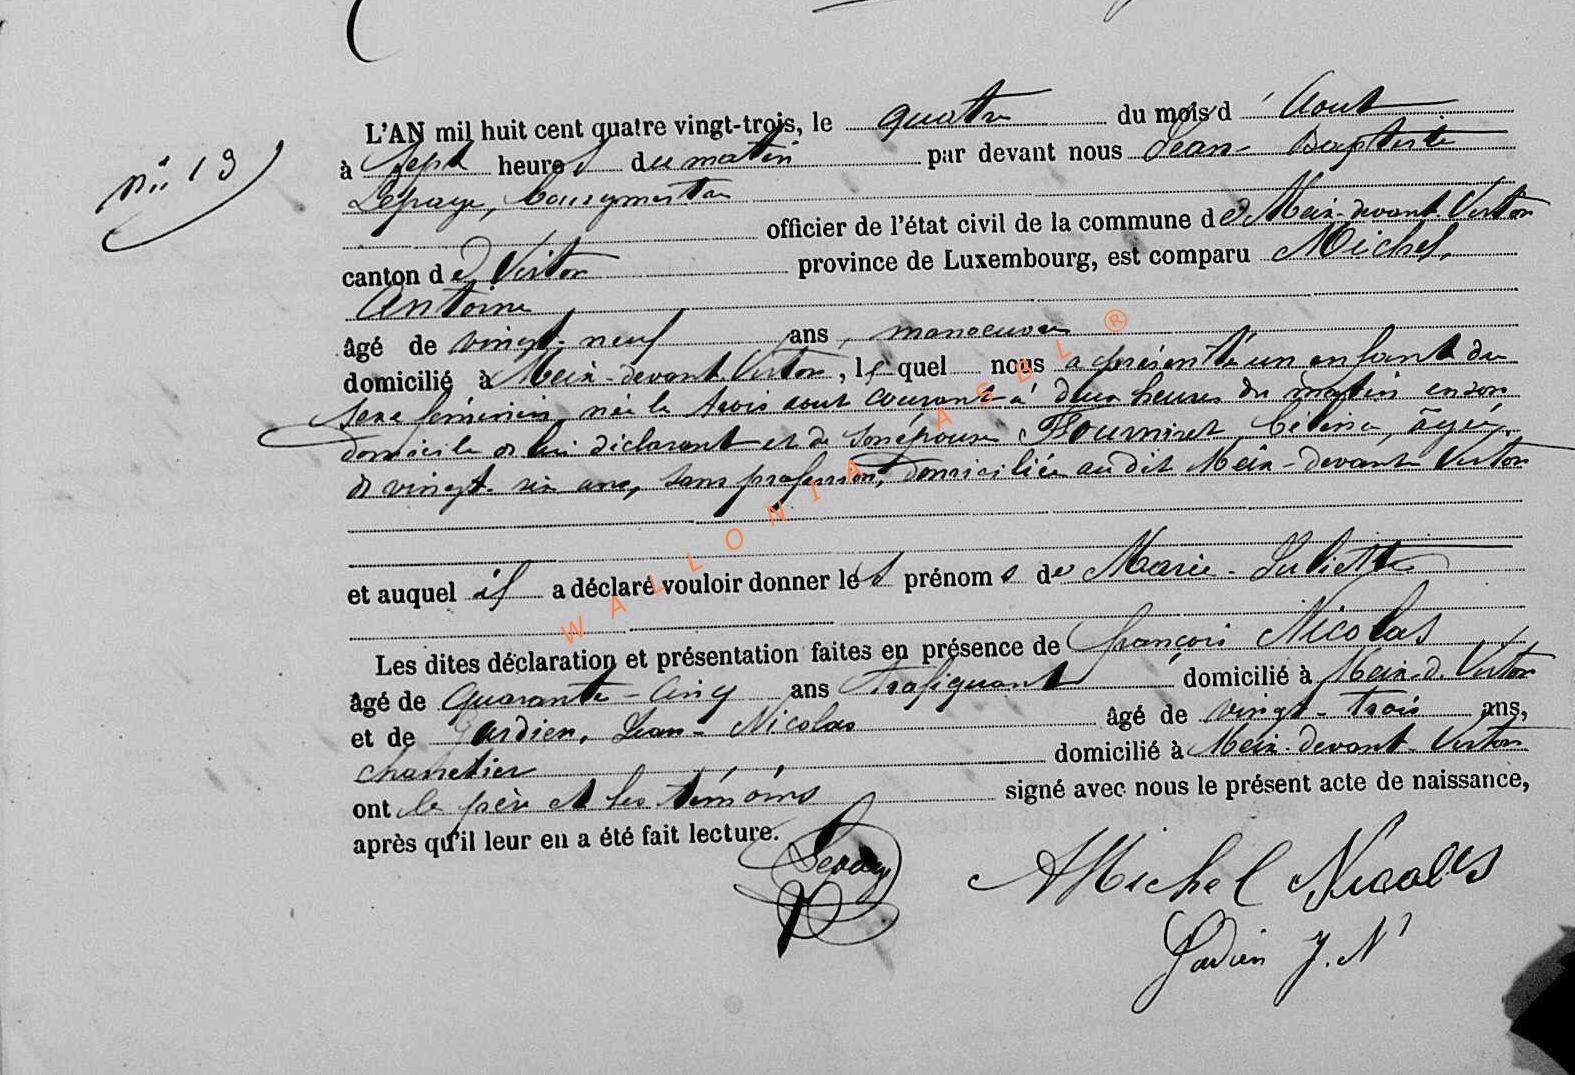 L'AN mil huit cent quatre vingt-trois, le quatre du mois d'Aout
nº 13
à Sept heures du matin par devant nous Jean-Baptiste
Lepage, bourgmestre
officier de l'état civil de la commune de Meix-devant-Virton
canton de Virton province de Luxembourg, est comparu Michel,
Antoine
âgé de vingt-neuf ans, manoeuvre
domicilié à Meix-devant-Virton, lequel nous a présenté un enfant du
sexe féminin, née le trois aout courant à deux heures du matin en son
domicile de lui déclarant et de son épouse Fourniret, Célina, âgée,
de vingt-six ans, sans profession, domiciliée au dit Meix-devant-Virton
et auquel il a déclaré vouloir donner les prénoms de Marie-Juliette
Les dites déclaration et présentation faites en présence de François Nicolas
âgé de quarante-cinq ans trafiquant domicilié à Meix-d-Virton
et de Jardien, Jean-Nicolas âgé de vingt-trois ans,
charretier domicilié à Meix-devant-Virton
ont le père et les témoins signé avec nous le présent acte de naissance,
après qu'il leur en a été fait lecture.
Lepage AMichel Nicolas
Jadien J. N
WALLONIA ASBL ®